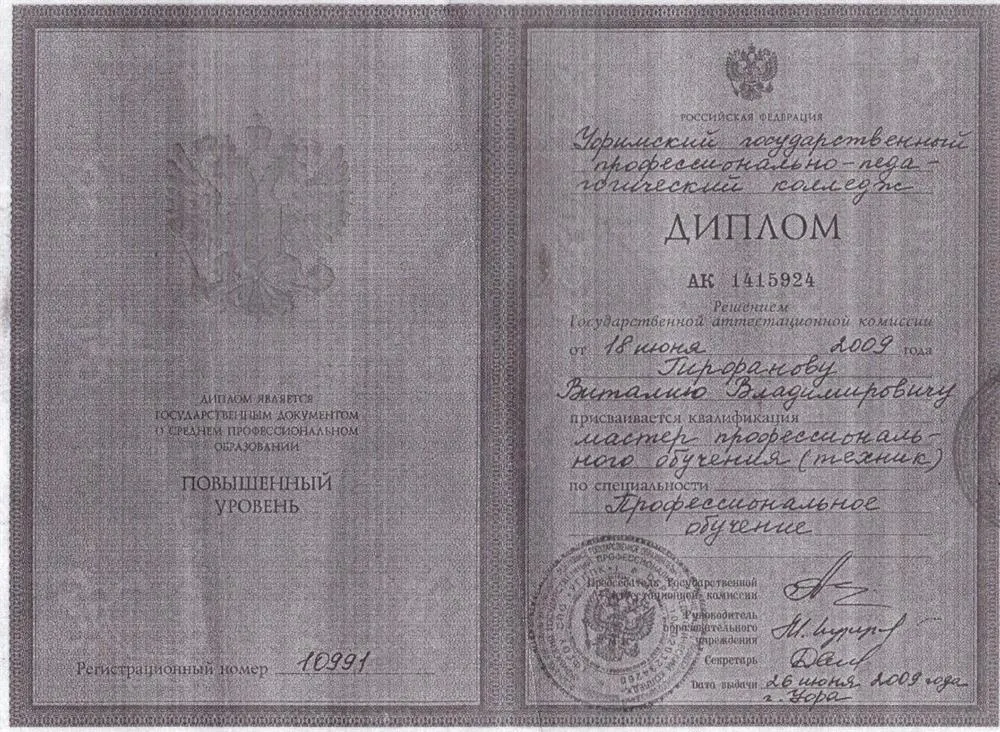 ДИПЛОМ ЯВЛЯЕТСЯ
ГОСУДАРСТВЕННЫМ ДОКУМЕНТОМ
О СРЕДНЕМ ПРОФЕССИОНАЛЬНОМ
ОБРАЗОВАНИИ
ПОВЫШЕННЫЙ
УРОВЕНЬ
Регистрационный номер 10991
РОССИЙСКАЯ ФЕДЕРАЦИЯ
Уфимский государственный
профессионально-педа-
гогический колледж
ДИПЛОМ
АК 1415924
Решением
Государственной аттестационной комиссии
от 18 июня 2009 года
Гирфанову
Виталию Владимировичу
присваивается квалификация
мастер профессиональ-
ного обучения (техник)
по специальности
Профессиональное
обучение
Председатель Государственной
аттестационной комиссии
Руководитель
образовательного
учреждения
Секретарь
Дата выдачи 26 июня 2009 года
г. Уфа